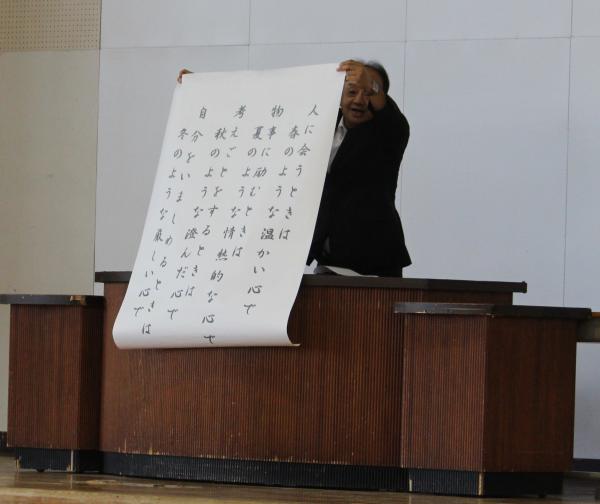 人に会うときは
春のような温かい心で
物事に励むときは
夏のような情熱的な心で
考えごとをするときは
秋のような澄んだ心で
自分をいましめるときは
冬のような厳しい心で